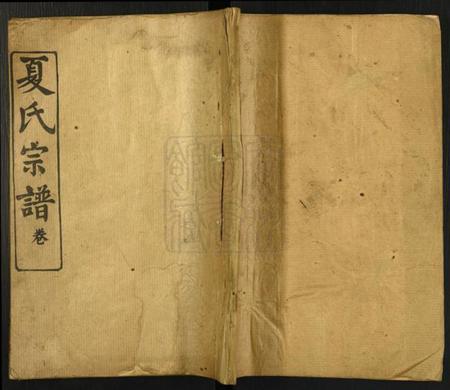 夏氏宗譜
卷